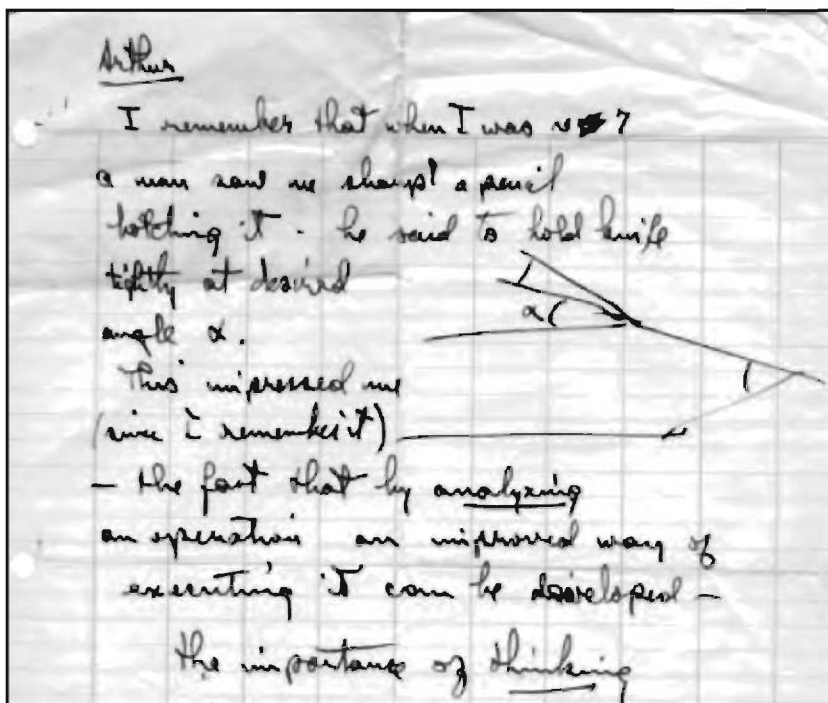 Arthur
I remember that when I was ~ 7
a man saw me sharp' a pencil
botching it. he said to hold knife
tightly at desired
α
angle α.
This impressed me
(since I remember it)
— the fact that by analyzing
an operation an improved way of
executing it can be developed —
the importance of thinking